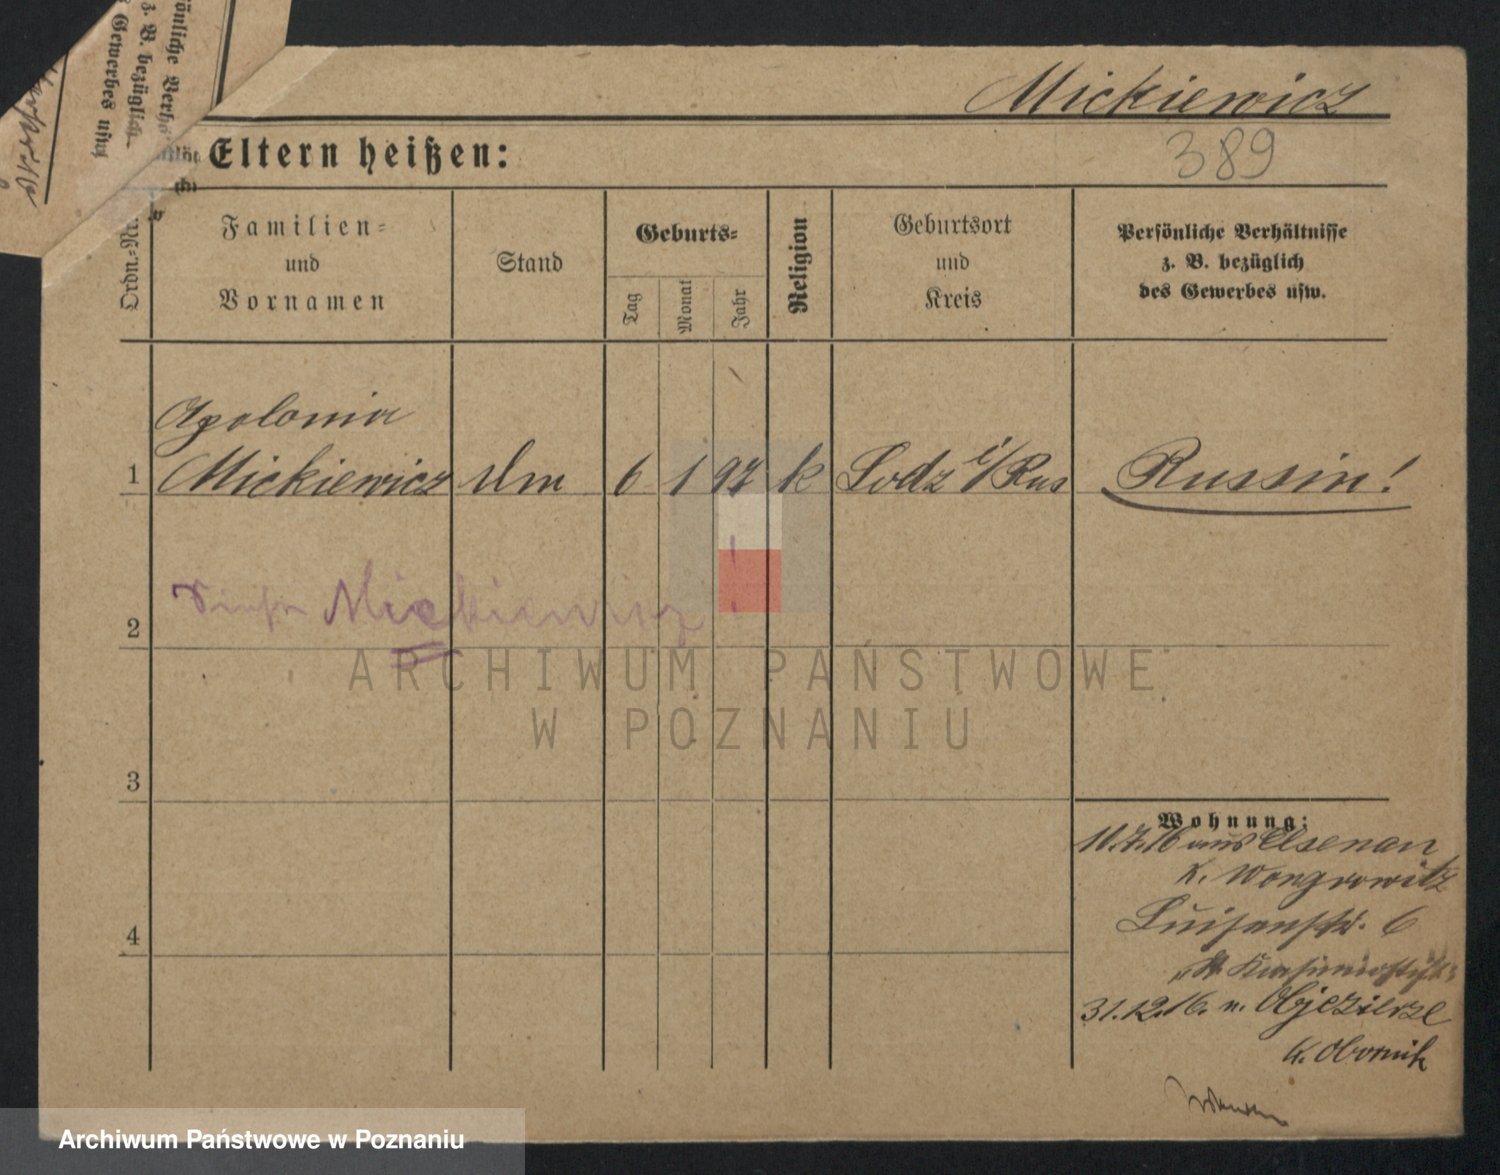 Mickiewicz
389
Eltern heißen:
önliche Verhä
z. B. bezüglich
Gewerbes usw
Ordn.-Nr.
Familien-
und
Vornamen
Stand
Geburts-
Tag
Monat
Jahr
Religion
Geburtsort
und
Kreis
Persönliche Verhältnisse
z. B. bezüglich
des Gewerbes usw.
Apolonia
1 Mickiewicz Dm 6 1 97 k Lodz i/Rus Russin!
2 Mickiewicz!
3
4
Wohnung:
10.7.16 aus Elsenau
K. Wongrowitz
Luisenstr. 6
31.12.16. n. Objezierze
K. Obornik
ARCHIWUM PAŃSTWOWE
W POZNANIU
Archiwum Państwowe w Poznaniu